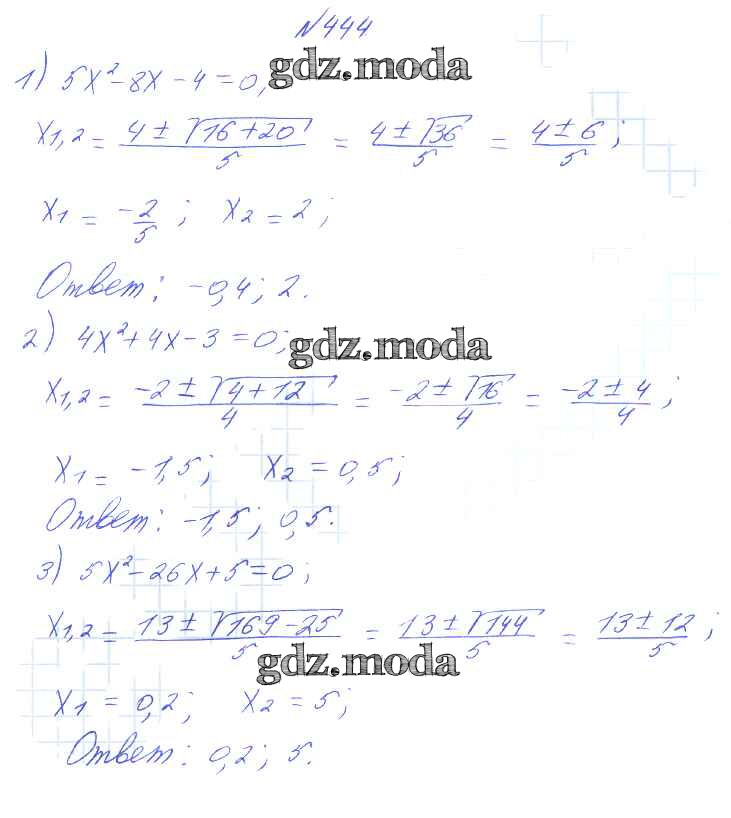 №444
gdz.moda
1) 5x² - 8x - 4 = 0,
x₁,₂ = (4 ± √(16 + 20))/5 = (4 ± √36)/5 = (4 ± 6)/5 ;
x₁ = -2/5 ; x₂ = 2 ;
Ответ: -0,4 ; 2.
2) 4x² + 4x - 3 = 0;
gdz.moda
x₁,₂ = (-2 ± √(4 + 12))/4 = (-2 ± √16)/4 = (-2 ± 4)/4 ;
x₁ = -1,5 ; x₂ = 0,5 ;
Ответ: -1,5 ; 0,5.
3) 5x² - 26x + 5 = 0 ;
x₁,₂ = (13 ± √(169 - 25))/5 = (13 ± √144)/5 = (13 ± 12)/5 ;
gdz.moda
x₁ = 0,2 ; x₂ = 5 ;
Ответ: 0,2 ; 5.